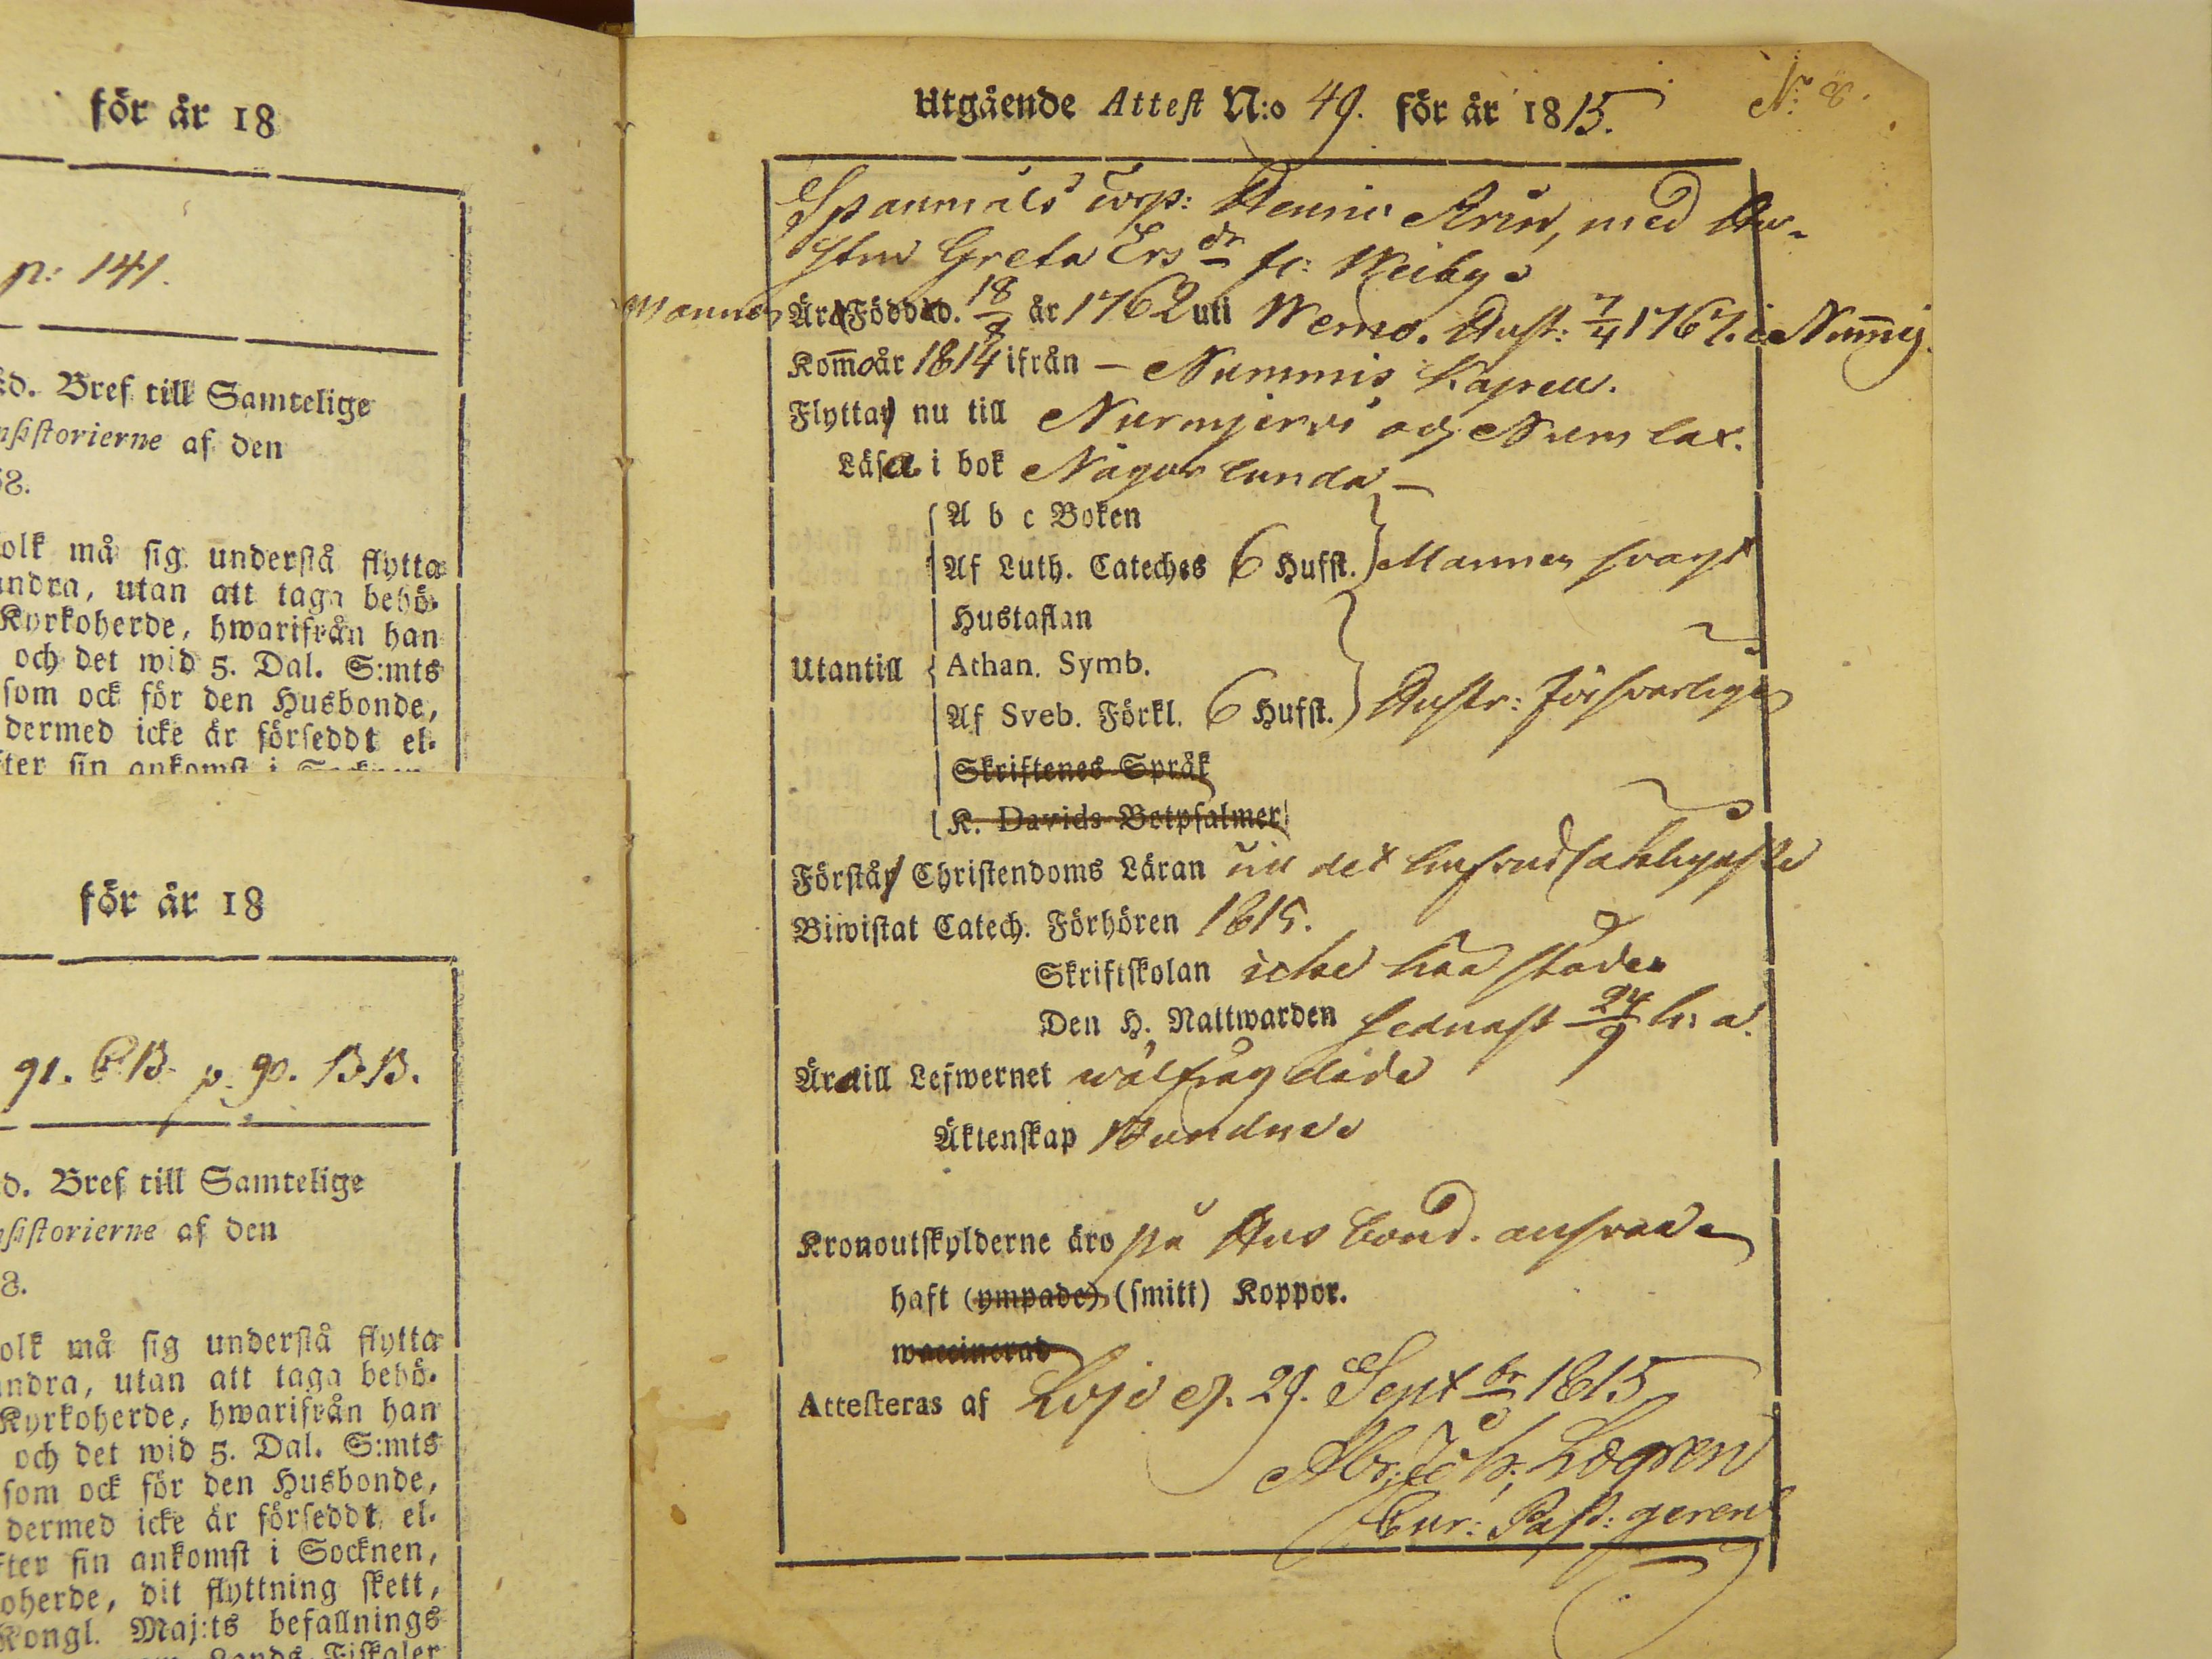 för år 18
p: 141.
d. Bref till Samtelige
nsistorierne af den
8.
olk må sig understå flytta
andra, utan att taga behö-
Kyrkoherde, hwarifrån han
och det wid 5. Dal. S:mts
som ock för den Husbonde,
dermed icke är förseddt el-
ter sin ankomst i Socknen
för år 18
91. CB. p. 90. BB.
d. Bref till Samtelige
nsistorierne af den
8.
olk må sig understå flytta
andra, utan att taga behö-
Kyrkoherde, hwarifrån han
och det wid 5. Dal. S:mts
som ock för den Husbonde,
dermed icke är förseddt el-
ter sin ankomst i Socknen,
oherde, dit flyttning skett,
Kongl. Maj:ts befallnings
Lands-Fiskaler
N: 8.
Utgående Attest N:o 49. för år 1815.
Spanmåls torp: Henric Arén, med Hu-
strun Greta Ersdr fr:
Mannen Är Född d. 18/8 år 1762 uti Wemo. Hust: 7/4 1767. i Nummis
Kommo år 1814 ifrån – Nummis Kapell.
Flytta nu till Nurmjervi och Numlax.
Läsa i bok Någorlunda –
Utantill
A b c Boken
Af Luth. Cateches 6 Hufst. Mannen svagt
Hustaflan
Athan. Symb.
Af Sveb. Förkl. 6 Hufst. Hustr: försvarligen
Skriftenes Språk
K. Davids Botpsalmer
Förstå Christendoms Läran till det hufvudsakligaste
Biwistat Catech. Förhören 1815.
Skriftskolan icke här städes
Den H. Nattwarden sednast 24/9 h: a.
Är till Lefwernet wälfrägdade
Äktenskap Bundne
Kronoutskylderne äro på Husbond. ansvar
haft (ympade) (smitt) Koppor.
waccinerad
Attesteras af Lojo d. 29. Septbr 1815
Abr: Joh: Logren
Cur: Past: gerens